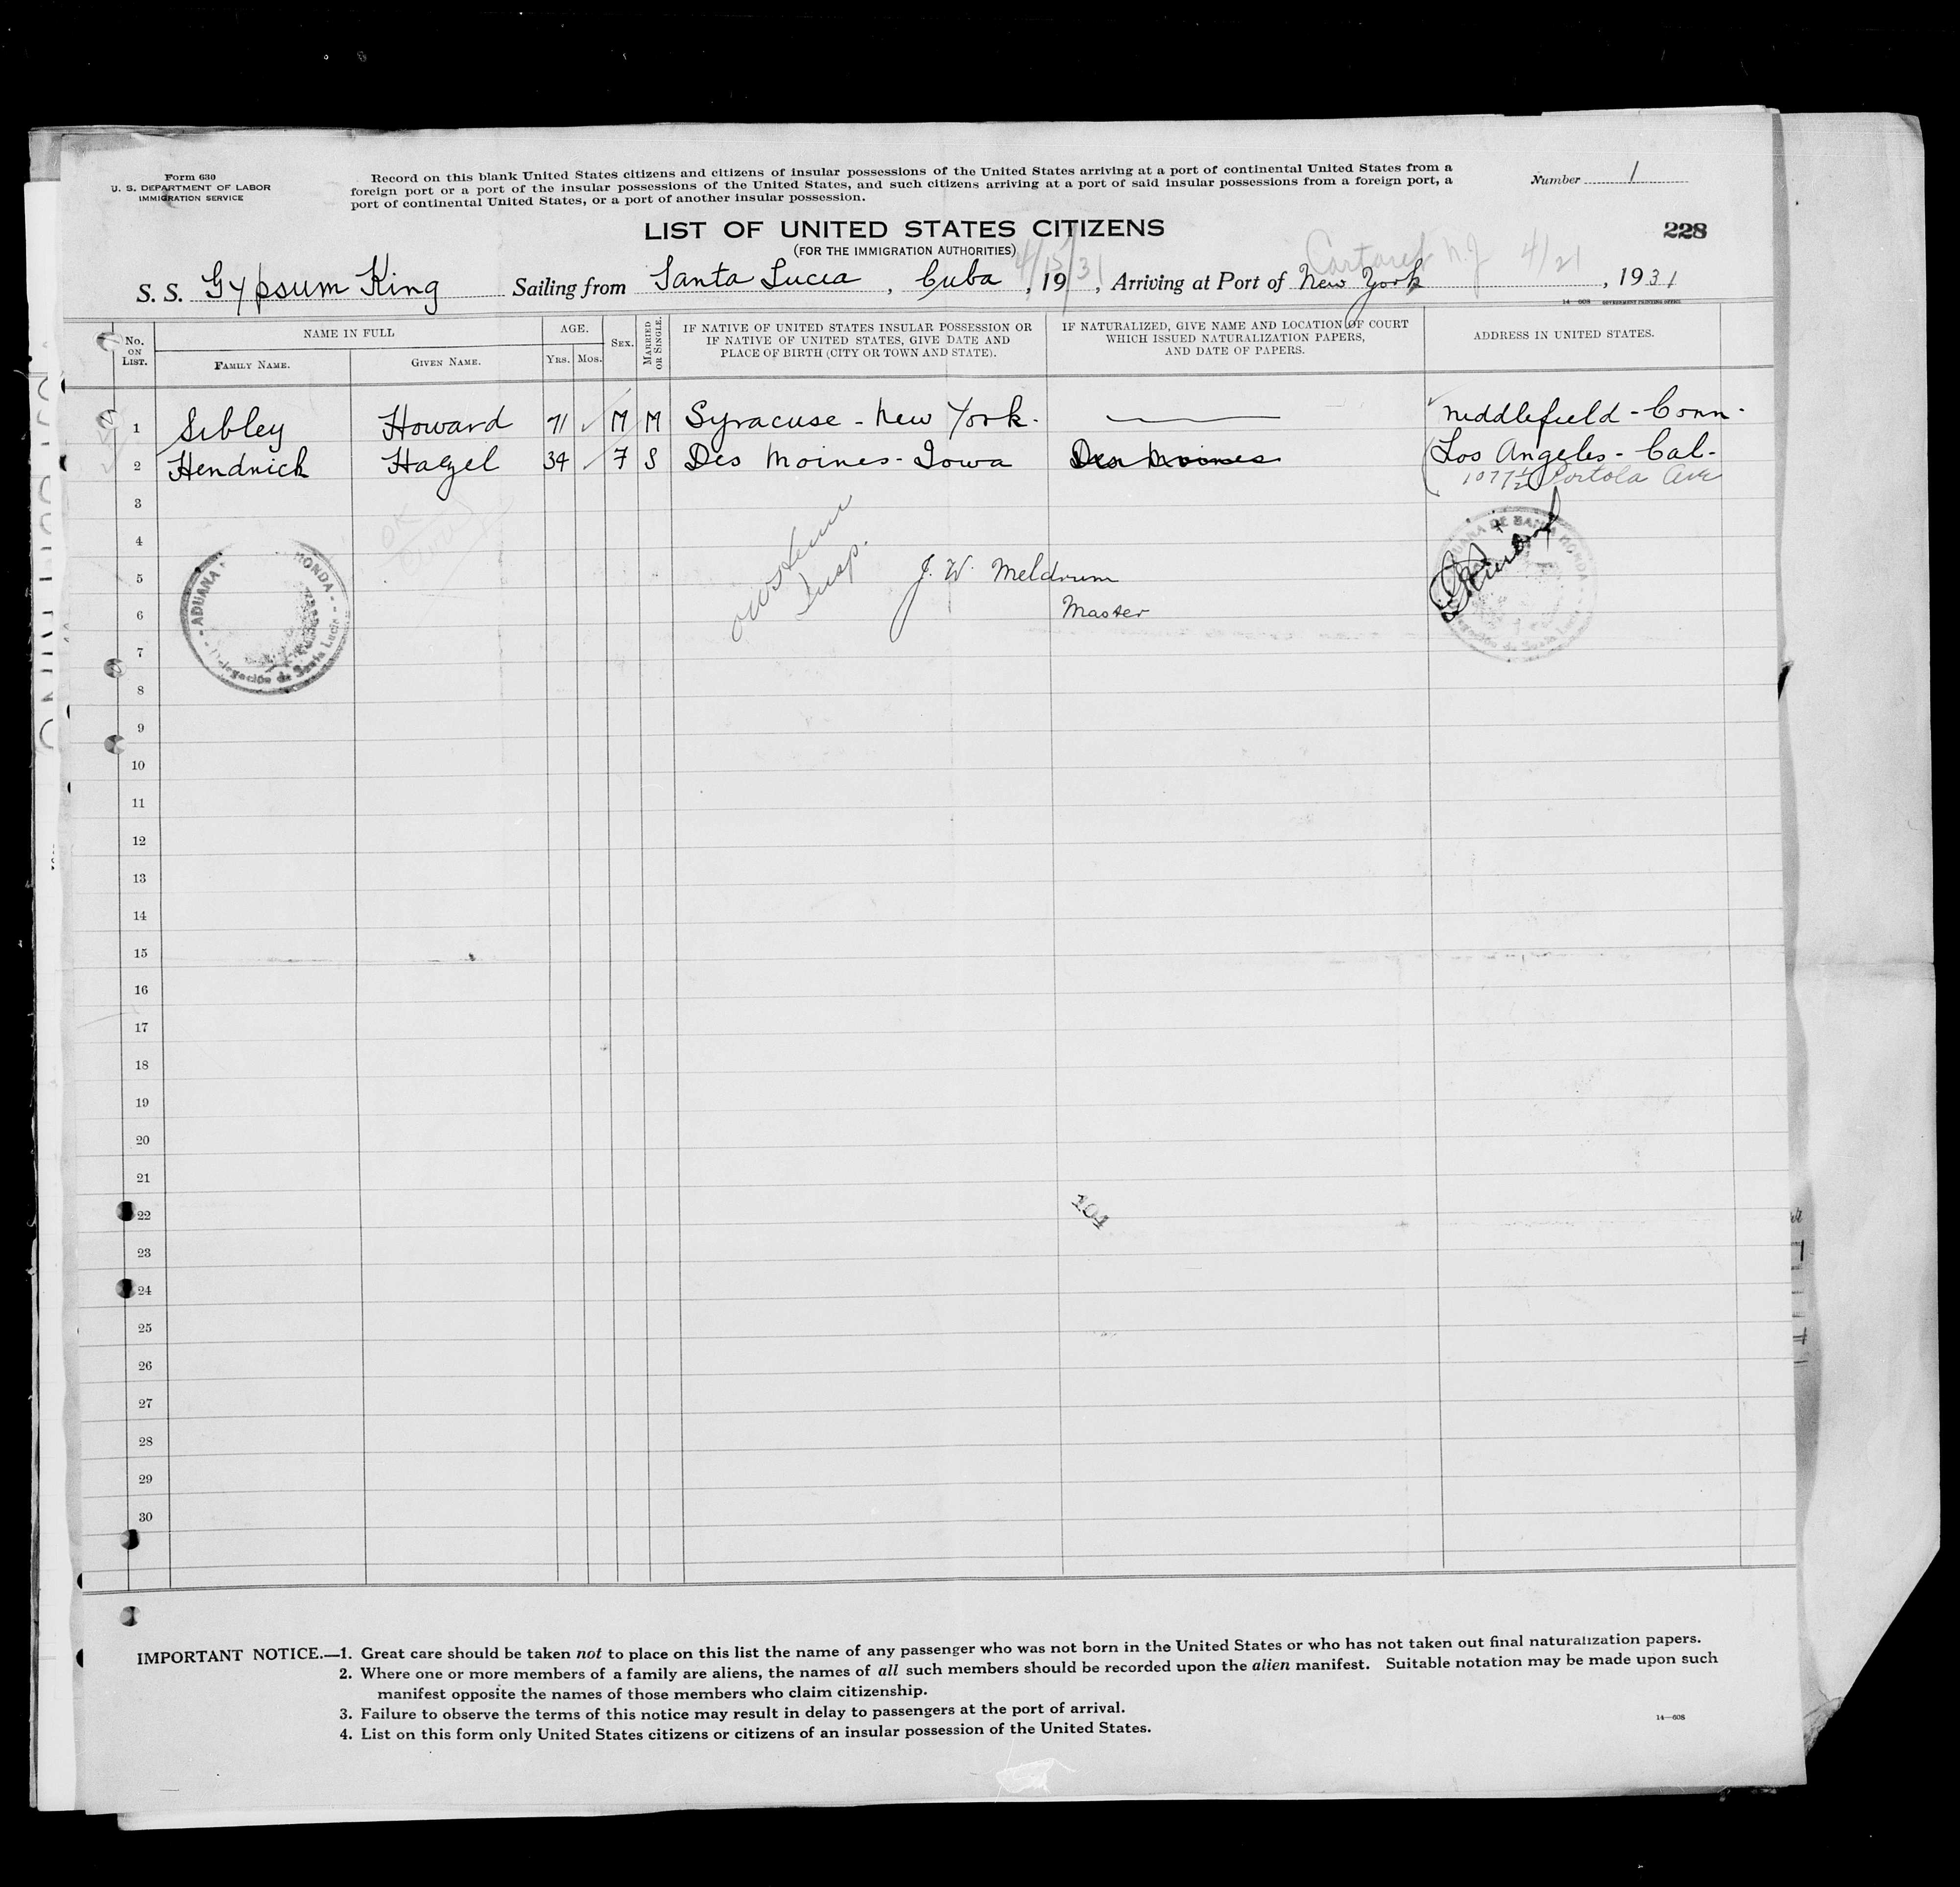 Form 630
U. S. DEPARTMENT OF LABOR
IMMIGRATION SERVICE
Record on this blank United States citizens and citizens of insular possessions of the United States arriving at a port of continental United States from a
foreign port or a port of the insular possessions of the United States, and such citizens arriving at a port of said insular possessions from a foreign port, a
port of continental United States, or a port of another insular possession.
Number 1
LIST OF UNITED STATES CITIZENS
228
(FOR THE IMMIGRATION AUTHORITIES)
Carteret N.J 4/21
4/15/31
S. S. Gypsum King Sailing from Santa Lucia, Cuba, 19 , Arriving at Port of New York, 1931
14—608 GOVERNMENT PRINTING OFFICE
No. ON LIST. NAME IN FULL AGE. SEX. MARRIED OR SINGLE. IF NATIVE OF UNITED STATES INSULAR POSSESSION OR IF NATIVE OF UNITED STATES, GIVE DATE AND PLACE OF BIRTH (CITY OR TOWN AND STATE). IF NATURALIZED, GIVE NAME AND LOCATION OF COURT WHICH ISSUED NATURALIZATION PAPERS, AND DATE OF PAPERS. ADDRESS IN UNITED STATES.
FAMILY NAME. GIVEN NAME. YRS. MOS.
1 Sibley Howard 71 M M Syracuse - New York. Middlefield - Conn.
2 Hendrick Hazel 34 F S Des Moines - Iowa Des Moines Los Angeles - Cal.
1077½ Portola Ave
3
4
5 J. W. Meldrum
Insp.
6 Master
ADUANA HONDA
Delegación de Santa Lucia
ADUANA DE BAHIA HONDA
Delegación de Santa Lucia
7
8
9
10
11
12
13
14
15
16
17
18
19
20
21
22 104
23
24
25
26
27
28
29
30
IMPORTANT NOTICE.—1. Great care should be taken not to place on this list the name of any passenger who was not born in the United States or who has not taken out final naturalization papers.
2. Where one or more members of a family are aliens, the names of all such members should be recorded upon the alien manifest. Suitable notation may be made upon such
manifest opposite the names of those members who claim citizenship.
3. Failure to observe the terms of this notice may result in delay to passengers at the port of arrival.
4. List on this form only United States citizens or citizens of an insular possession of the United States.
14—608